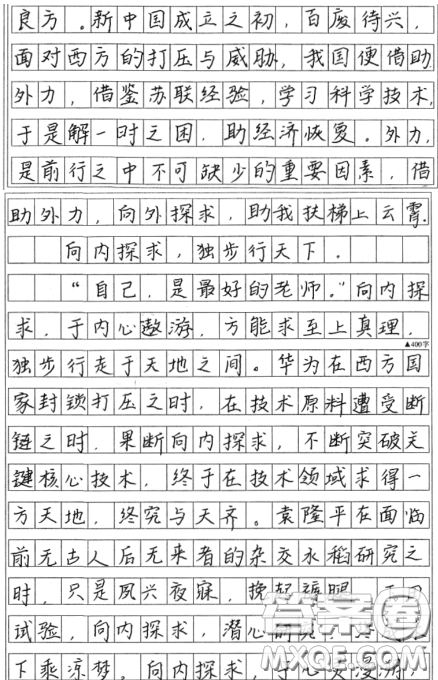 良方。新中国成立之初，百废待兴，
面对西方的打压与威胁，我国便借助
外力，借鉴苏联经验，学习科学技术，
于是解一时之困，助经济恢复。外力，
是前行之中不可缺少的重要因素，借
助外力，向外探求，助我扶梯上云霄。
向内探求，独步行天下。
“自己，是最好的老师。”向内探
求，于内心遨游，方能求至上真理，
▲400字
独步行走于天地之间。华为在西方国
家封锁打压之时，在技术原料遭受断
链之时，果断向内探求，不断突破关
键核心技术，终于在技术领域求得一
方天地，终究与天齐。袁隆平在面临
前无古人后无来者的杂交水稻研究之
时，只是夙兴夜寐，挽起裤腿，
试验，向内探求，潜心研究，
下乘凉梦。向内探求，于心灵漫游，
答案圈
MXQE.COM